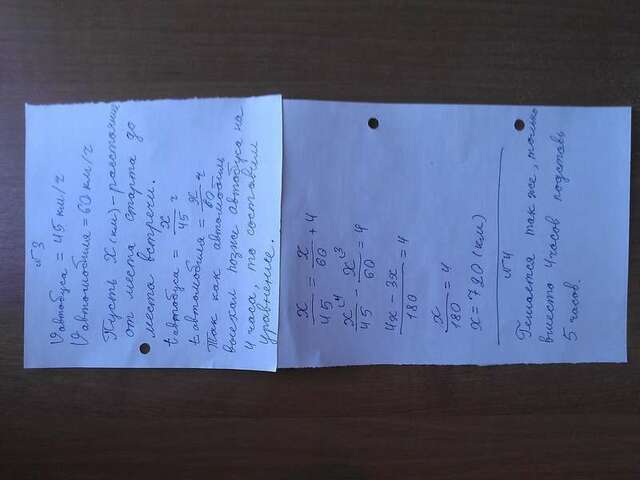 №3
Vавтобуса = 45 км/ч
Vавтомобиля = 60 км/ч
Пусть x(км) - расстояние
от места старта до
места встречи.
tавтобуса = x/45 ч
tавтомобиля = x/60 ч
Так как автомобиль
выехал позже автобуса на
4 часа, то составим
уравнение.
x/45 = x/60 + 4
x/45 4 - x/60 3 = 4
4x - 3x/180 = 4
x/180 = 4
x = 720 (км)
№4
Решается так же, только
вместо 4 часов подставь
5 часов.